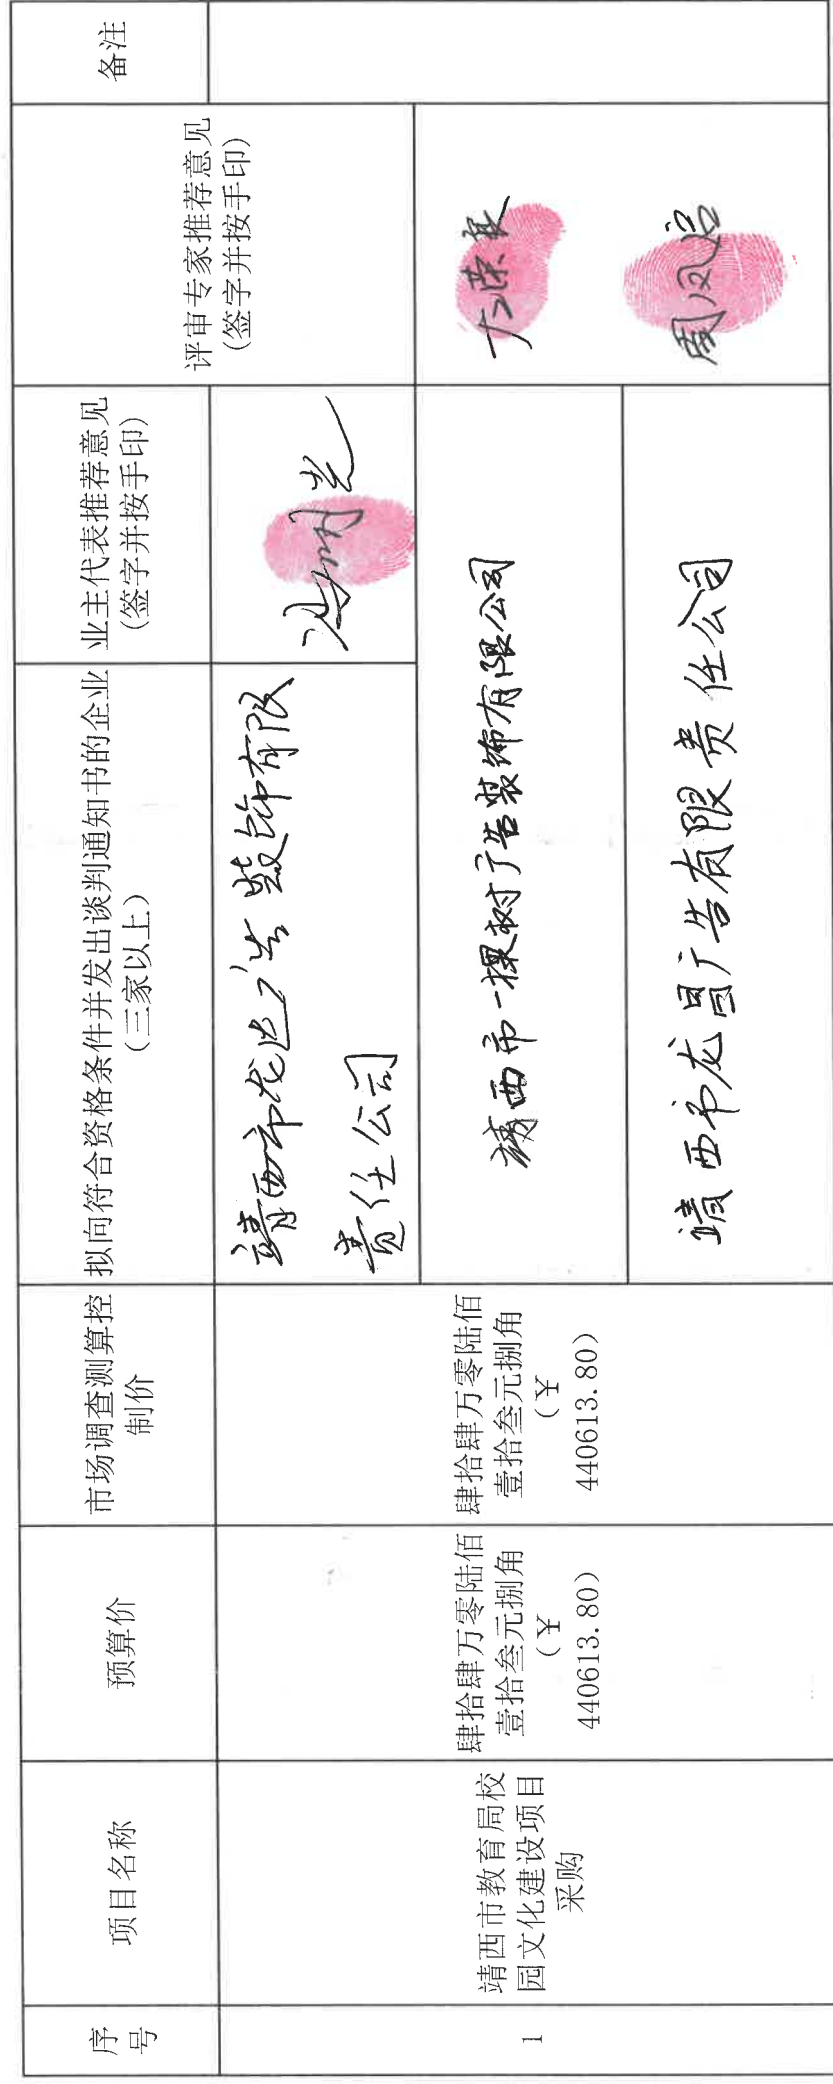 序
号
项目名称
预算价
市场调查测算控
制价
拟向符合资格条件并发出谈判通知书的企业
（三家以上）
业主代表推荐意见
（签字并按手印）
评审专家推荐意见
（签字并按手印）
备注
1
靖西市教育局校
园文化建设项目
采购
肆拾肆万零陆佰
壹拾叁元捌角
（¥
440613.80）
肆拾肆万零陆佰
壹拾叁元捌角
（¥
440613.80）
靖西市龙达广告装饰有限
责任公司
靖西市一棵树广告装饰有限公司
靖西市龙昌广告有限责任公司